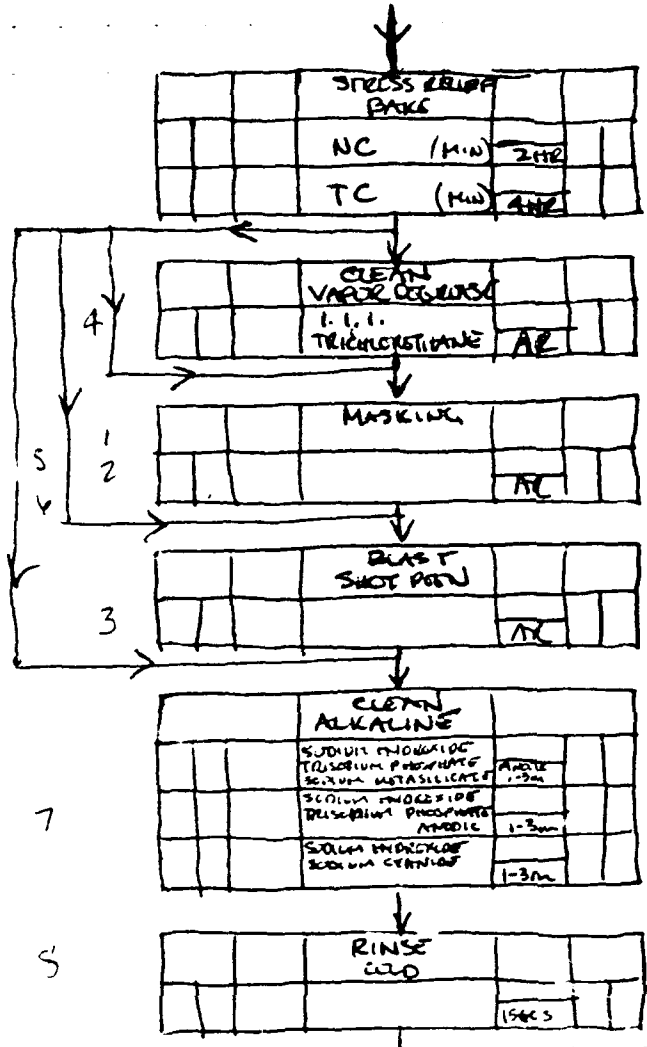 STRESS RELIEF
BAKE
NC (MIN) 2HR
TC (MIN) 4HR
CLEAN
VAPOR DEGREASE
1.1.1.
TRICHLORETHANE AR
4
MASKING
1
2
AR
5
6
BLAST
SHOT PEEN
3
AR
CLEAN
ALKALINE
SODIUM HYDROXIDE
TRISODIUM PHOSPHATE ANODIC
SODIUM METASILICATE 1-3m
SODIUM HYDROXIDE
TRISODIUM PHOSPHATE
ANODIC 1-3m
7
SODIUM HYDROXIDE
SODIUM CYANIDE
1-3m
RINSE
COLD
15SECS